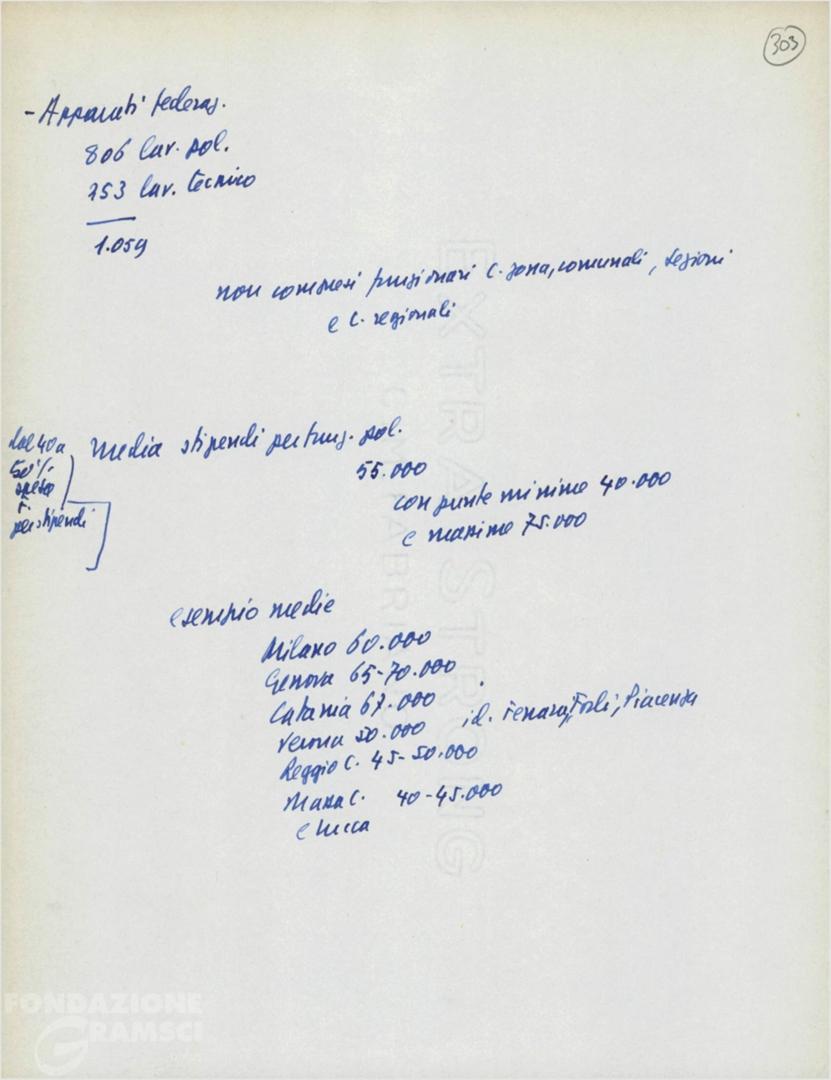 303
- Apparati federaz.
806 lav. pol.
253 lav. tecnico
1.059
non compresi funzionari C. zona, comunali, sezioni
e C. regionali
dal 40 a
50%
spesa
per stipendi
Media stipendi per funz. pol.
55.000
con punte minime 40.000
e massime 75.000
esempio medie
Milano 60.000
Genova 65-70.000
Catania 67.000
Verona 50.000 id. Ferrara, Forlì, Piacenza
Reggio C. 45-50.000
Massa C. 40-45.000
e Lucca
EXTRA STRONG
FONDAZIONE
GRAMSCI